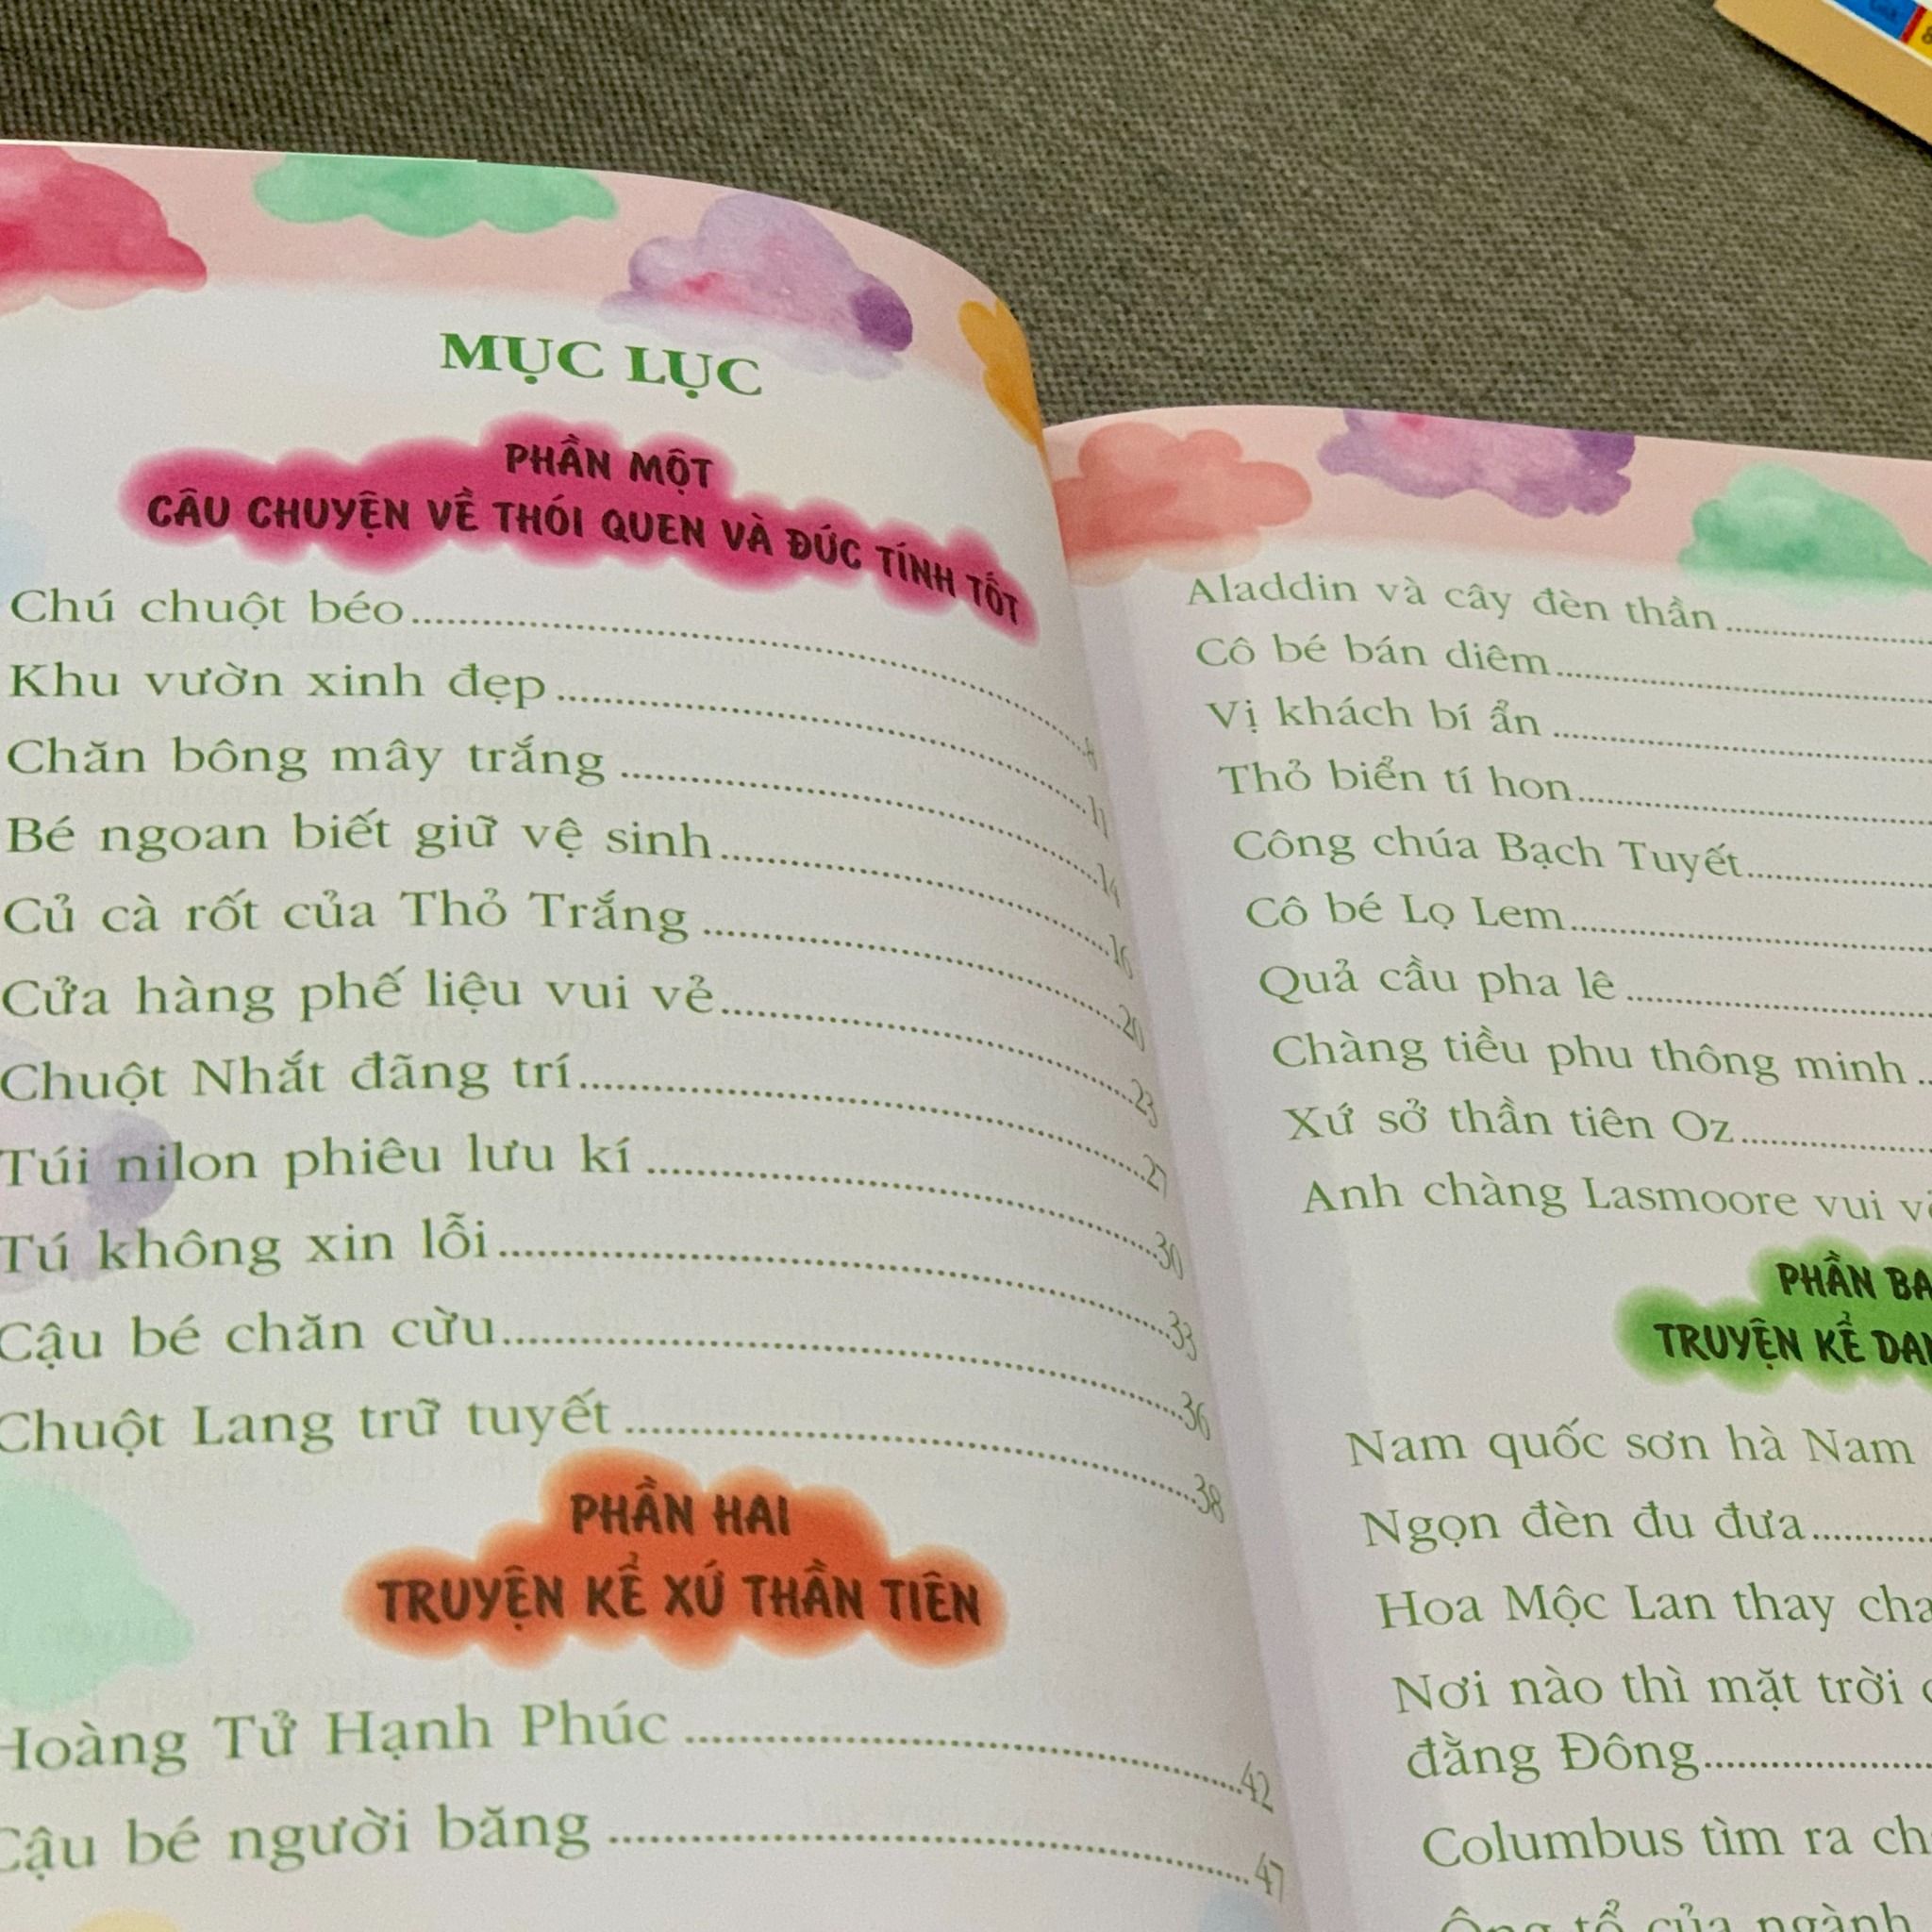 MỤC LỤC
PHẦN MỘT
CÂU CHUYỆN VỀ THÓI QUEN VÀ ĐỨC TÍNH TỐT
Chú chuột béo..........8
Khu vườn xinh đẹp..........11
Chăn bông mây trắng..........14
Bé ngoan biết giữ vệ sinh..........16
Củ cà rốt của Thỏ Trắng..........20
Cửa hàng phế liệu vui vẻ..........23
Chuột Nhắt đãng trí..........27
Túi nilon phiêu lưu kí..........30
Tú không xin lỗi..........33
Cậu bé chăn cừu..........36
Chuột Lang trữ tuyết..........38
PHẦN HAI
TRUYỆN KỂ XỨ THẦN TIÊN
Hoàng Tử Hạnh Phúc..........42
Cậu bé người băng..........47
Aladdin và cây đèn thần..........
Cô bé bán diêm..........
Vị khách bí ẩn..........
Thỏ biển tí hon..........
Công chúa Bạch Tuyết..........
Cô bé Lọ Lem..........
Quả cầu pha lê..........
Chàng tiều phu thông minh..
Xứ sở thần tiên Oz..........
Anh chàng Lasmoore vui
PHẦN BA
TRUYỆN KỂ
Nam quốc sơn hà Nam
Ngọn đèn đu đưa..........
Hoa Mộc Lan thay cha
Nơi nào thì mặt trời
đằng Đông..........
Columbus tìm ra
Ông tổ của ngành